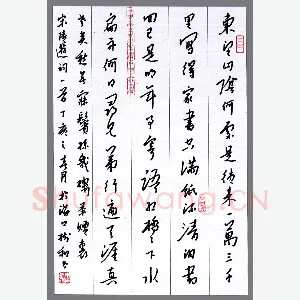 東望山陰何處是往来一萬三千
里寫得家書空滿紙流清泪書
回已是明年事寄語紅橋橋下水
扁舟何日尋兄弟行遍天涯真
老矣愁無寐鬢絲幾縷茶煙裏
宋陸游詞一首丁亥之春月於海口